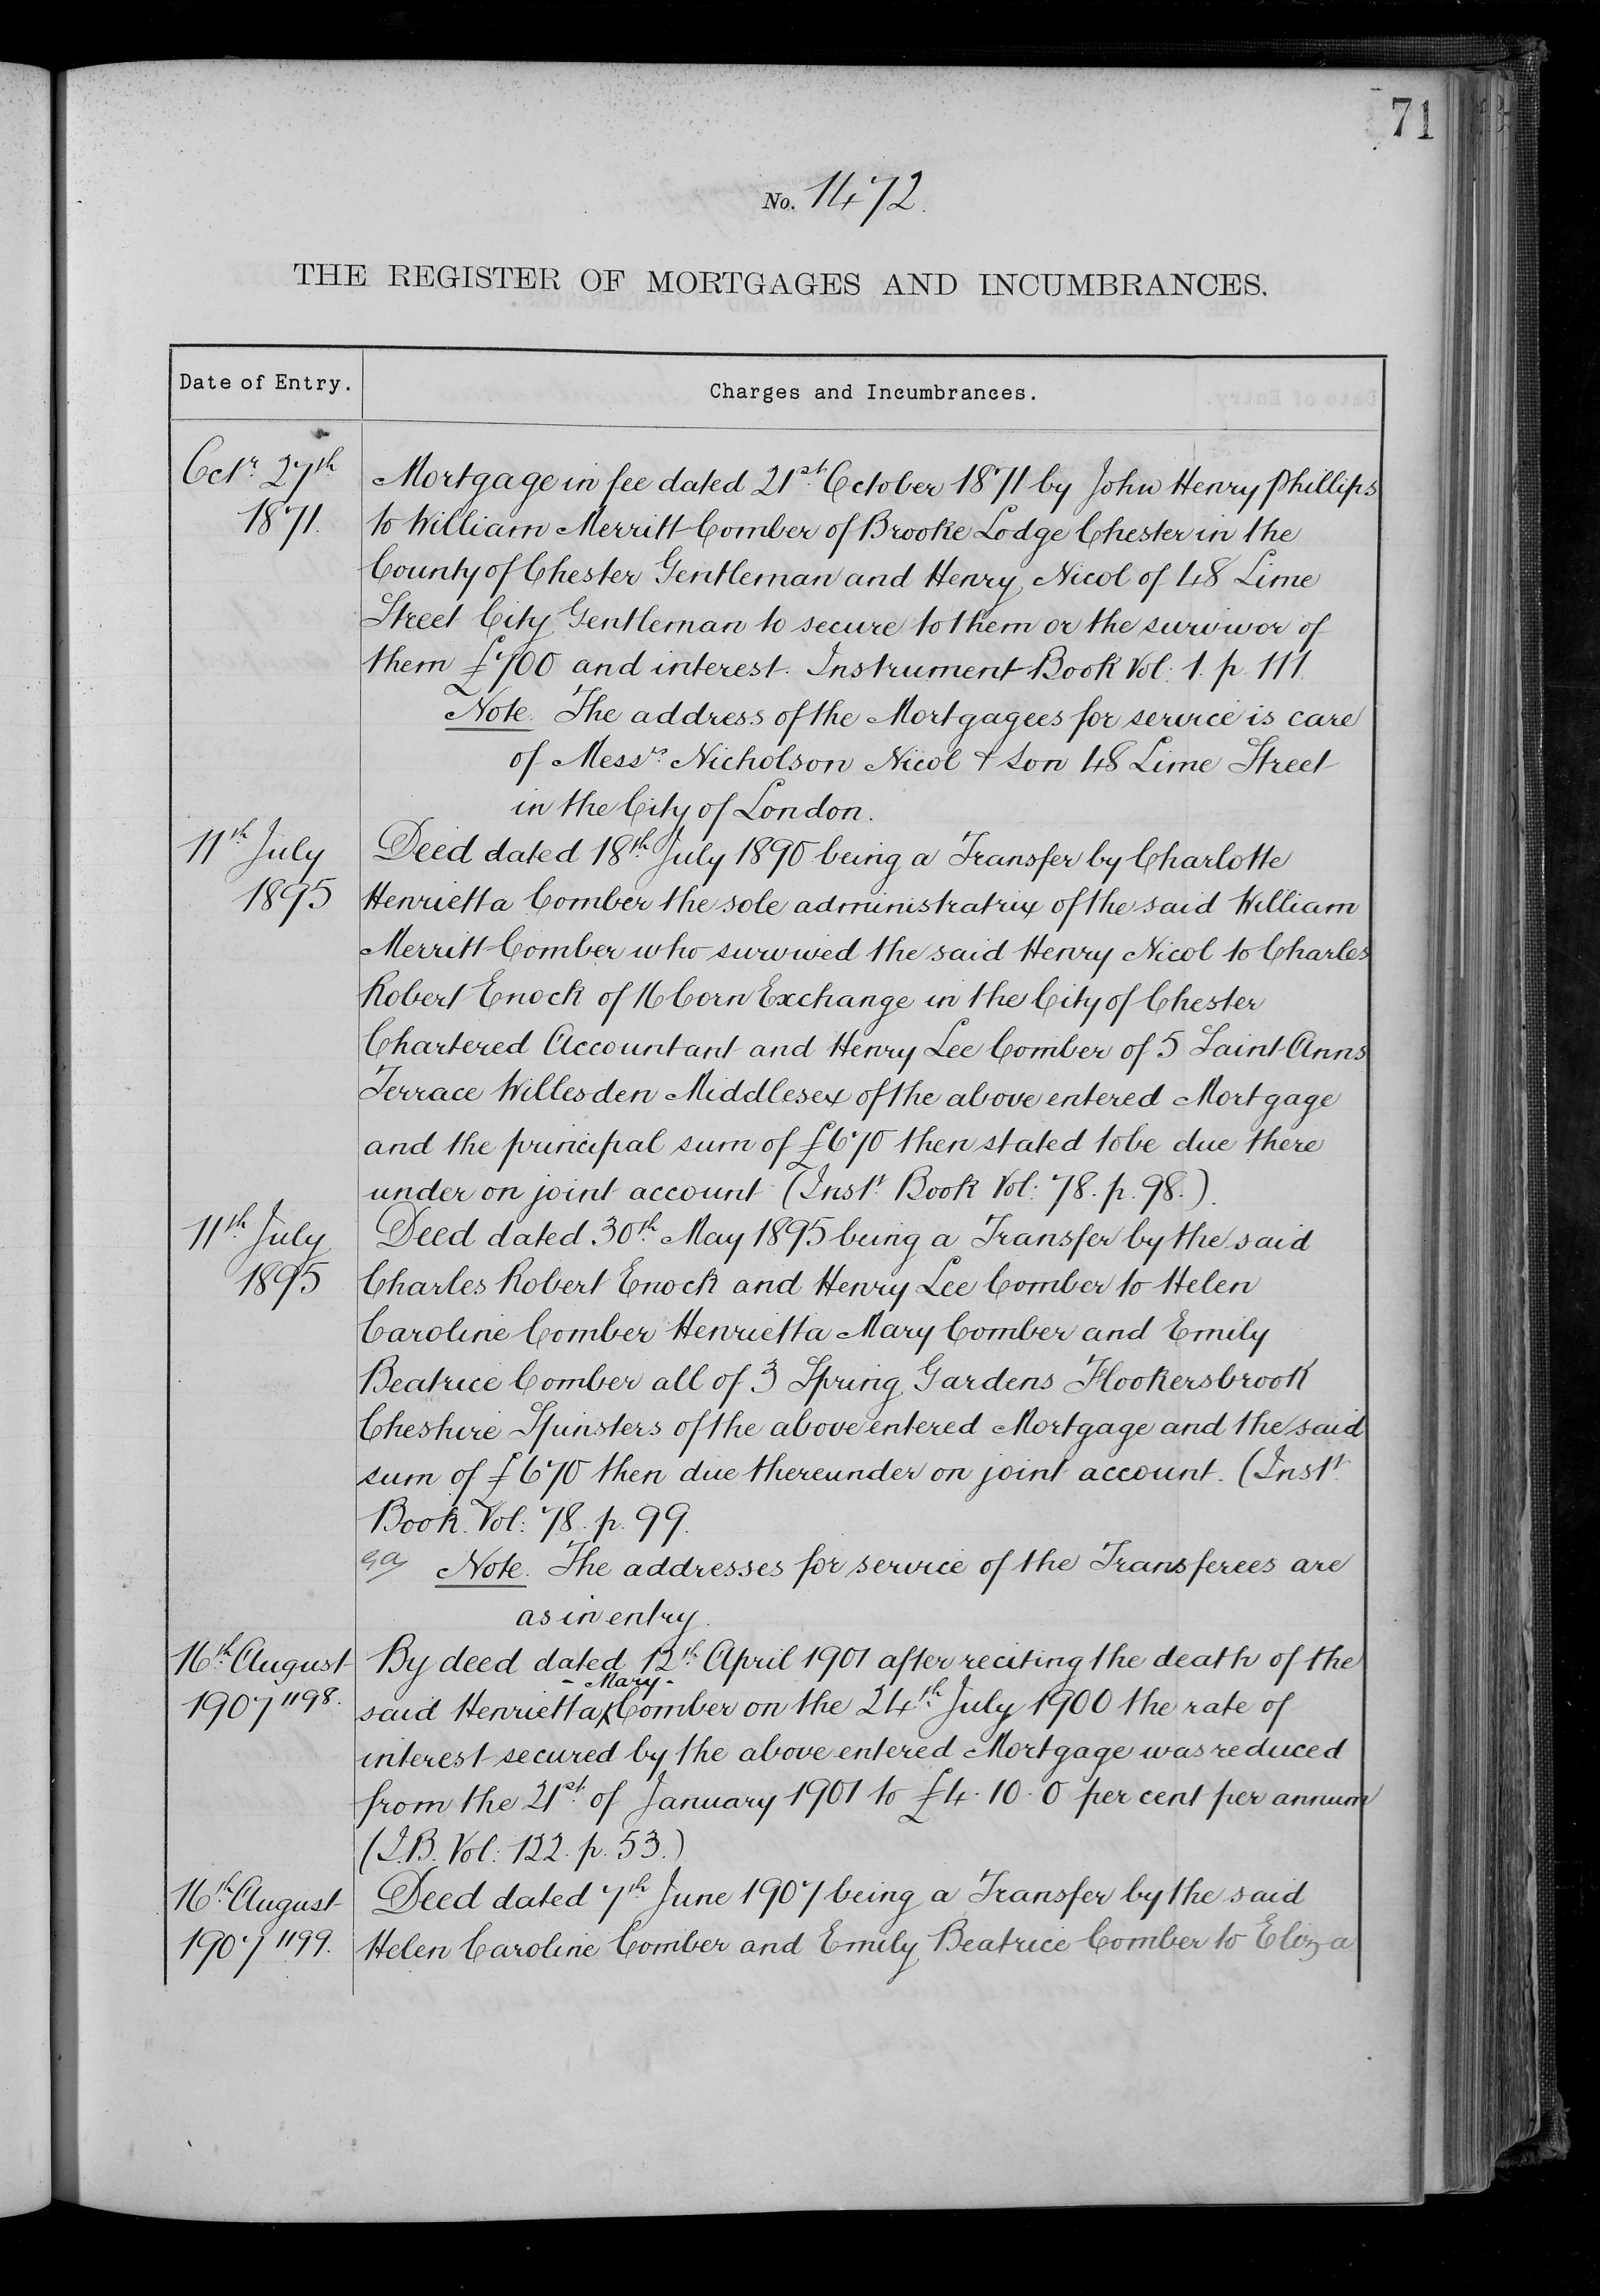 71
No. 1472.
THE REGISTER OF MORTGAGES AND INCUMBRANCES.
Date of Entry.
Charges and Incumbrances.
Octr. 27th
1871.
Mortgage in fee dated 21st October 1871 by John Henry Phillips
to William Merritt Comber of Brooke Lodge Chester in the
County of Chester Gentleman and Henry Nicol of 48 Lime
Street City Gentleman to secure to them or the survivor of
them £700 and interest. Instrument Book Vol: 1. p. 111.
Note. The address of the Mortgagees for service is care
of Messrs. Nicholson Nicol & Son 48 Lime Street
in the City of London.
11th July
1895
Deed dated 18th July 1890 being a Transfer by Charlotte
Henrietta Comber the sole administratrix of the said William
Merritt Comber who survived the said Henry Nicol to Charles
Robert Enock of 16 Corn Exchange in the City of Chester
Chartered Accountant and Henry Lee Comber of 5 Saint Anns
Terrace Willesden Middlesex of the above entered Mortgage
and the principal sum of £670 then stated to be due there
under on joint account (Instt. Book Vol: 78. p. 98.).
11th July
1895
Deed dated 30th May 1895 being a Transfer by the said
Charles Robert Enock and Henry Lee Comber to Helen
Caroline Comber Henrietta Mary Comber and Emily
Beatrice Comber all of 3 Spring Gardens Flookersbrook
Cheshire Spinsters of the above entered Mortgage and the said
sum of £670 then due thereunder on joint account. (Instt.
Book. Vol: 78. p. 99.
Note. The addresses for service of the Transferees are
as in entry.
16th August
1907 1198.
By deed dated 12th April 1901 after reciting the death of the
- Mary -
said Henrietta Comber on the 24th July 1900 the rate of
interest secured by the above entered Mortgage was reduced
from the 21st of January 1901 to £4. 10. 0 per cent per annum
(I.B. Vol: 122. p. 53.)
16th August
1907 1199.
Deed dated 7th June 1907 being a Transfer by the said
Helen Caroline Comber and Emily Beatrice Comber to Eliza